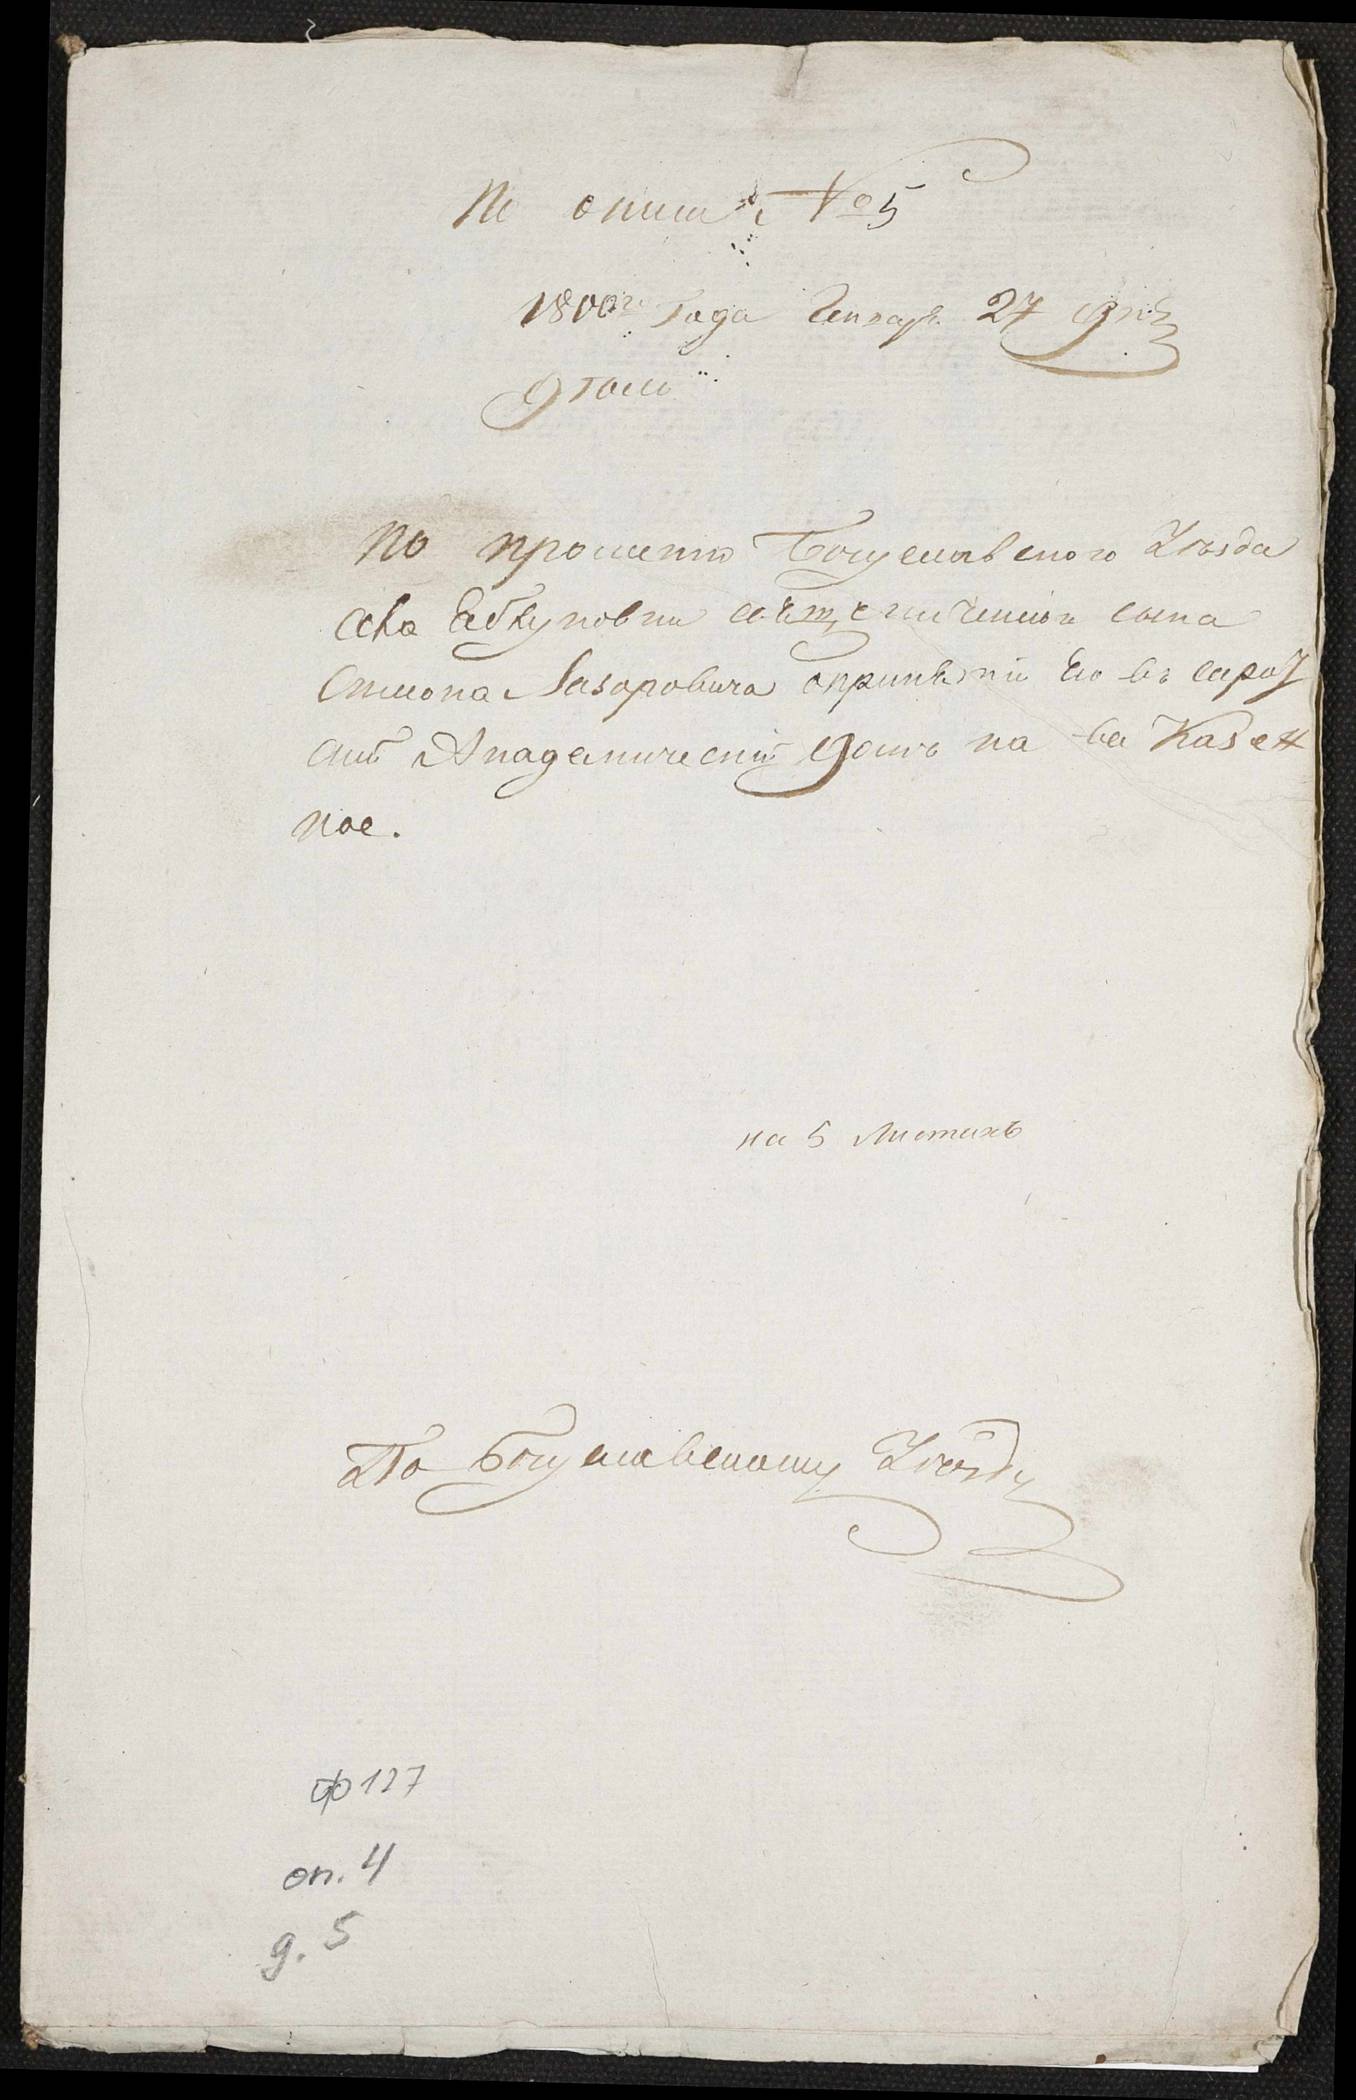 По описи №5
1800го Года Генваря 27 дня
дѣло
По прошению Богуславского Уѣзда
села священнического сына
Симона Лазаровича опринятии его въ сирот
ский Академический домъ на ва Казен
ное.
на 5 листахъ
По Богуславскому Уѣзду
ф 127
оп. 4
д. 5